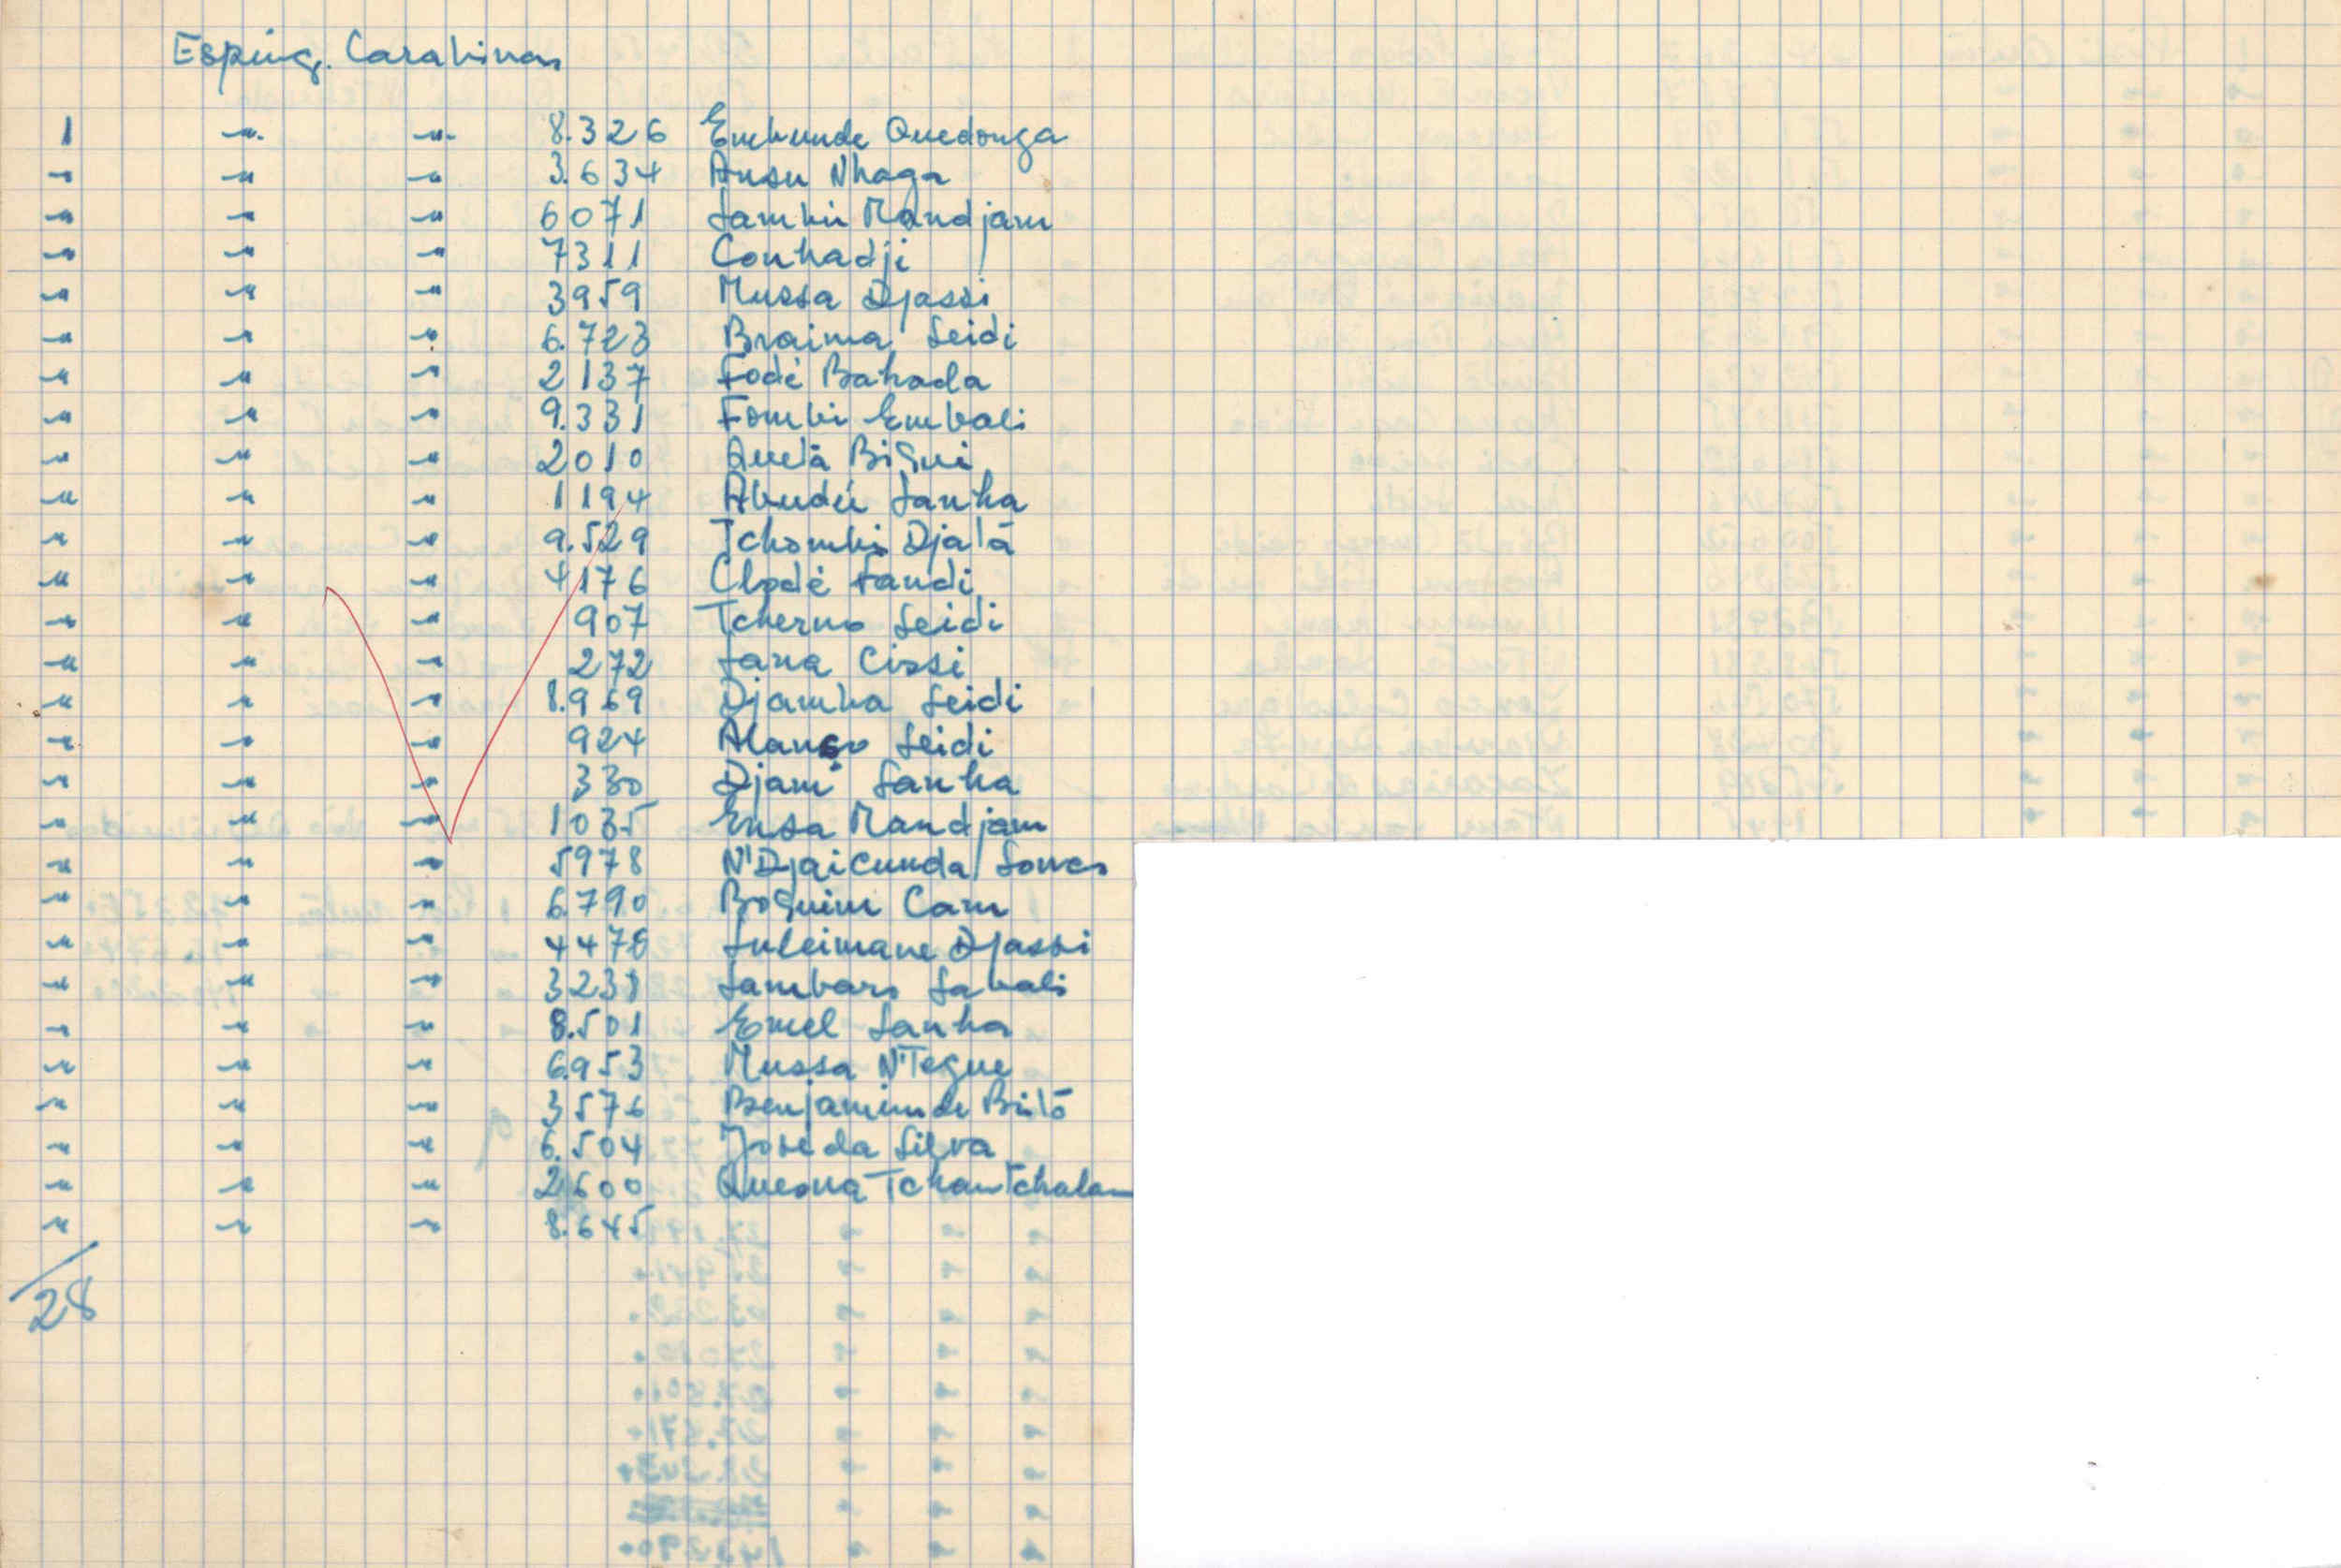 Esping. Carabinas
1 " " 8.326 Embunde Quedonga
" " " 3.634 Ansu Nhaga
" " " 6071 Sambú Mandjam
" " " 7311 Conhadji
" " " 3959 Mussa Djassi
" " " 6.723 Braima Seidi
" " " 2137 Fodé Bahada
" " " 9.331 Fombi Embali
" " " 2010 Quelá Bigni
" " " 1194 Abudú Sanha
" " " 9.529 Tchombi Djalá
" " " 4176 Clodé Sandi
" " " 907 Tcherno Seidi
" " " 272 Sana Cissi
" " " 8.969 Djamba Seidi
" " " 924 Alanso Seidi
" " " 330 Djami Sanha
" " " 1035 Ensa Mandjam
" " " 5978 N'Djaicunda Sonco
" " " 6790 Boguim Cam
" " " 4478 Suleimane Djassi
" " " 3231 Sambaro Sabali
" " " 8.501 Emel Sanha
" " " 6953 Mussa N'Tegue
" " " 3576 Benjamim de Britó
" " " 6.504 José da Silva
" " " 2600 Quesna Tchantchalam
" " " 8.645
28